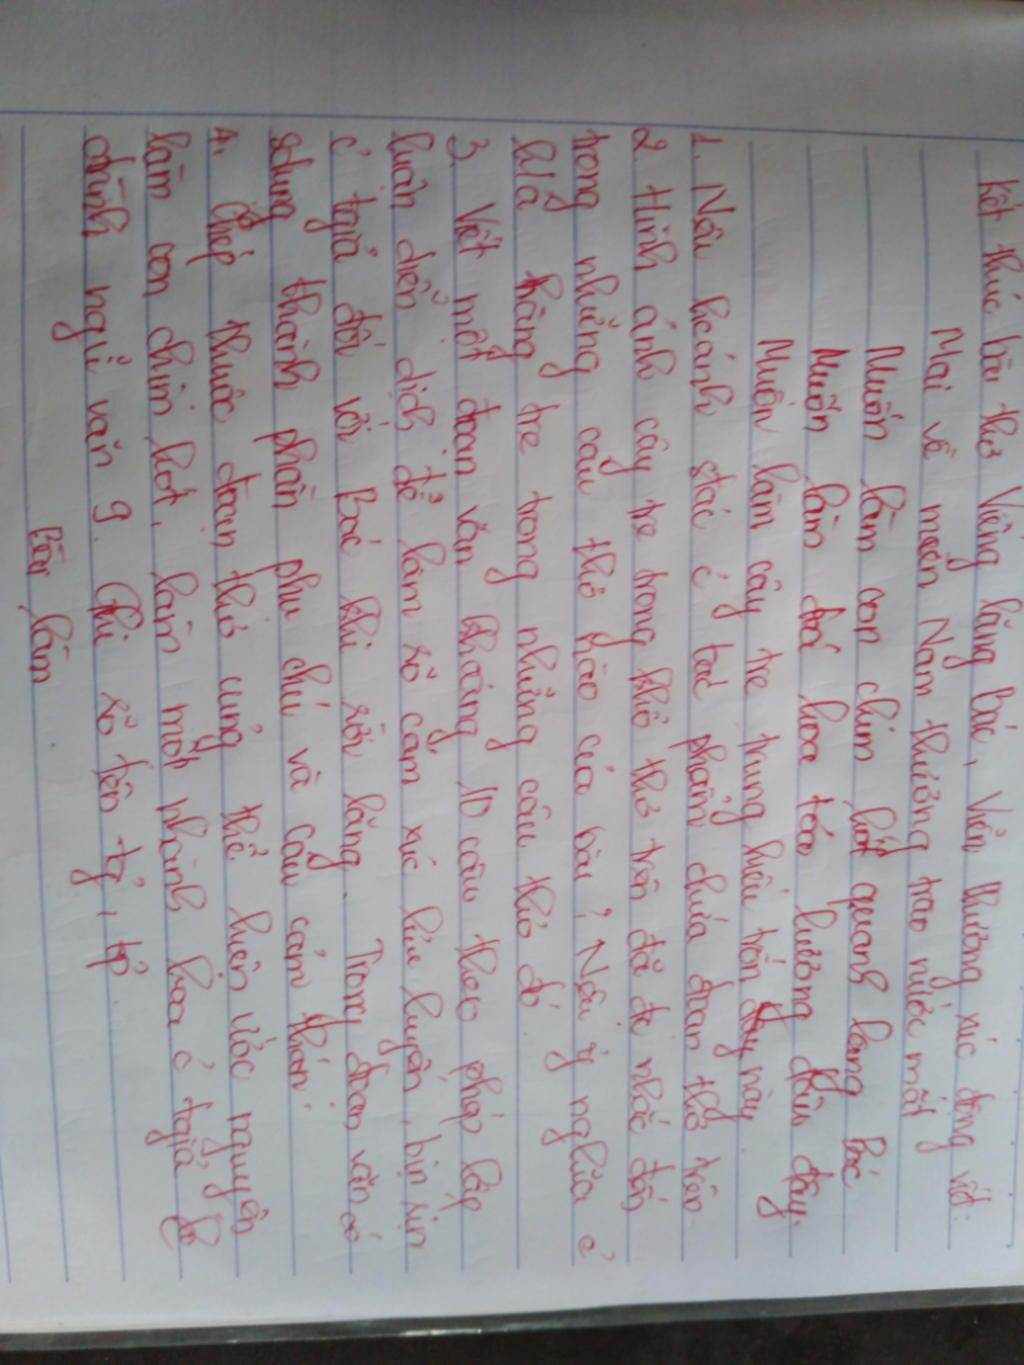 Kết thúc bài thơ Viếng lăng Bác, Viễn Phương xúc động viết:
Mai về miền Nam thương trào nước mắt
Muốn làm con chim hót quanh lăng Bác
Muốn làm đoá hoa tỏa hương đâu đây.
Muốn làm cây tre trung hiếu trốn này.
1. Nêu hcảnh stác c' tác phẩm chứa đoạn thơ trên.
2. Hình ảnh cây tre trong khổ thơ trên đã đc nhắc đến
trong những câu thơ nào của bài? Nêu ý nghĩa c'
hả hàng tre trong những câu thơ đó.
3. Viết một đoạn văn khoảng 10 câu theo phép lập
luận diễn dịch để làm rõ cảm xúc lưu luyến, bịn rịn
c' tgiả đối với Bác khi rời lăng. Trong đoạn văn có
sdụng thành phần phụ chú và câu cảm thán.
4. Chép thuộc đoạn thơ cũng thể hiện ước nguyện
làm con chim hót, làm một nhành hoa c' tgiả
chtrình ngữ văn 9. Ghi rõ tên tg, tp.
Bài làm